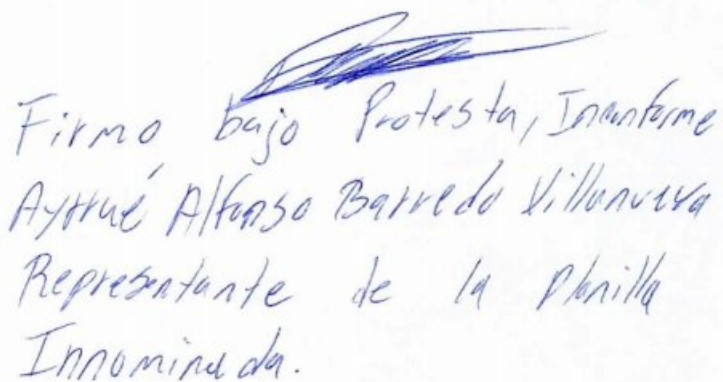 Firmo bajo Protesta, Inconforme
Alfonso Barredo Villanueva
Representante de la Planilla
Innominada.